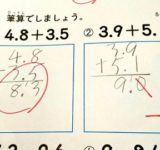 筆算でしましょう。
4.8+3.5 ② 3.9+5.
4.8
3.5
8.3
3.9
+5.1
9.0